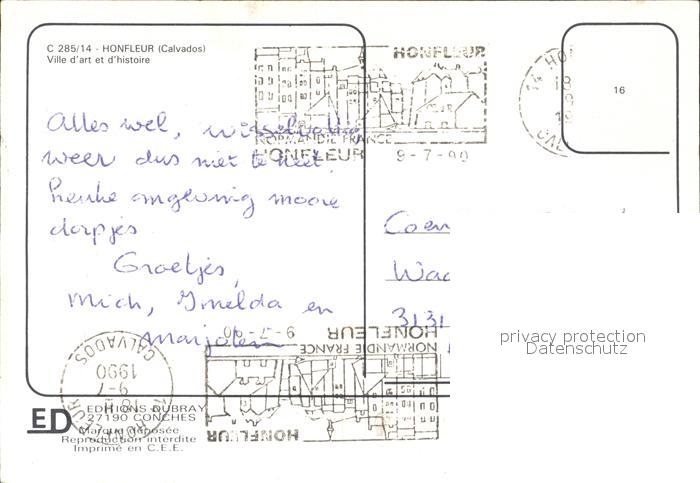 C 285/14 - HONFLEUR (Calvados)
Ville d'art et d'histoire
HONFLEUR
NORMANDIE FRANCE
HONFLEUR
9-7-90
16
Alles wel, wisselvallig
weer dus niet te heet.
Leuke omgeving mooie
dorpjes
Groetjes,
Mich, Imelda en
Marjolein
Coen
3131
9-7-90
HONFLEUR
NORMANDIE FRANCE
HONFLEUR
CALVADOS
1990
9-7
HONFLEUR
ED
EDITIONS DUBRAY
27190 CONCHES
Marque déposée
Reproduction interdite
Imprimé en C.E.E.
privacy protection
Datenschutz